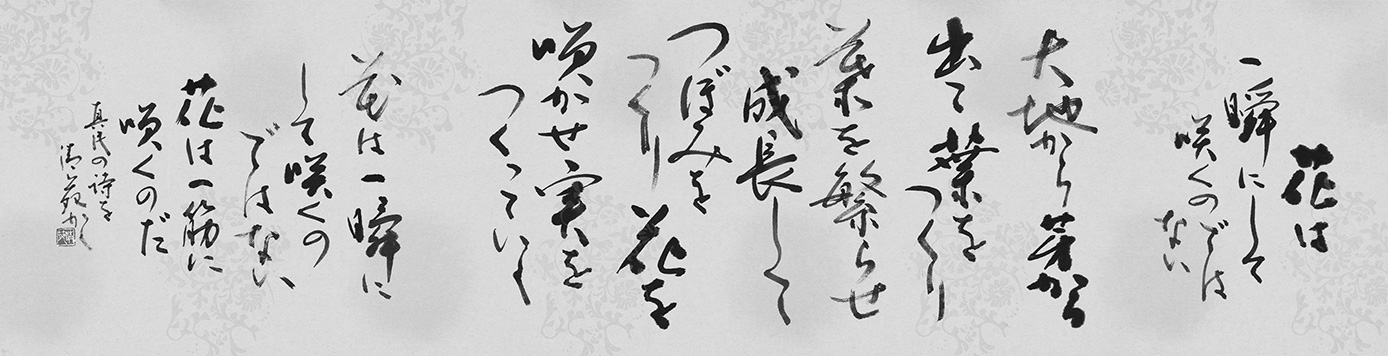 花は
一瞬にして
咲くのでは
ない
大地から芽が
出て葉を
つくり
葉を繁らせ
成長して
つぼみを
つくり
花を
咲かせ実を
つくっていく
花は一瞬に
して咲くの
ではない
花は一筋に
咲くのだ
真民の詩を
かく